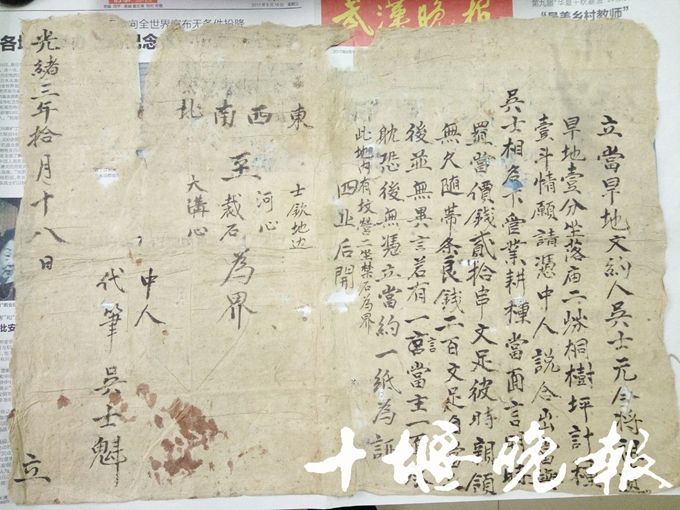 立當旱地文約人吳士元今將祖遺
旱地壹分坐落庙二㘭桐樹坪計種
壹斗情願請憑中人說合出當與
吳士相名下管業耕種當面言
置當價錢貳拾串文足彼時親領
無欠随帶条良錢二百文足
後並無異言若有一言當主一
耽恐後無憑立當約一紙為訓
此地内有坟塋二坐禁石為界
四止后開
東 士欽地边
西 河心
南 至裁石為界
北 大溝心
中人
代筆 吳士魁
光緒三年拾月十八日 立
武漢晚報
"最美乡村教师"
间全世界宣布无条件投降
十堰晚报